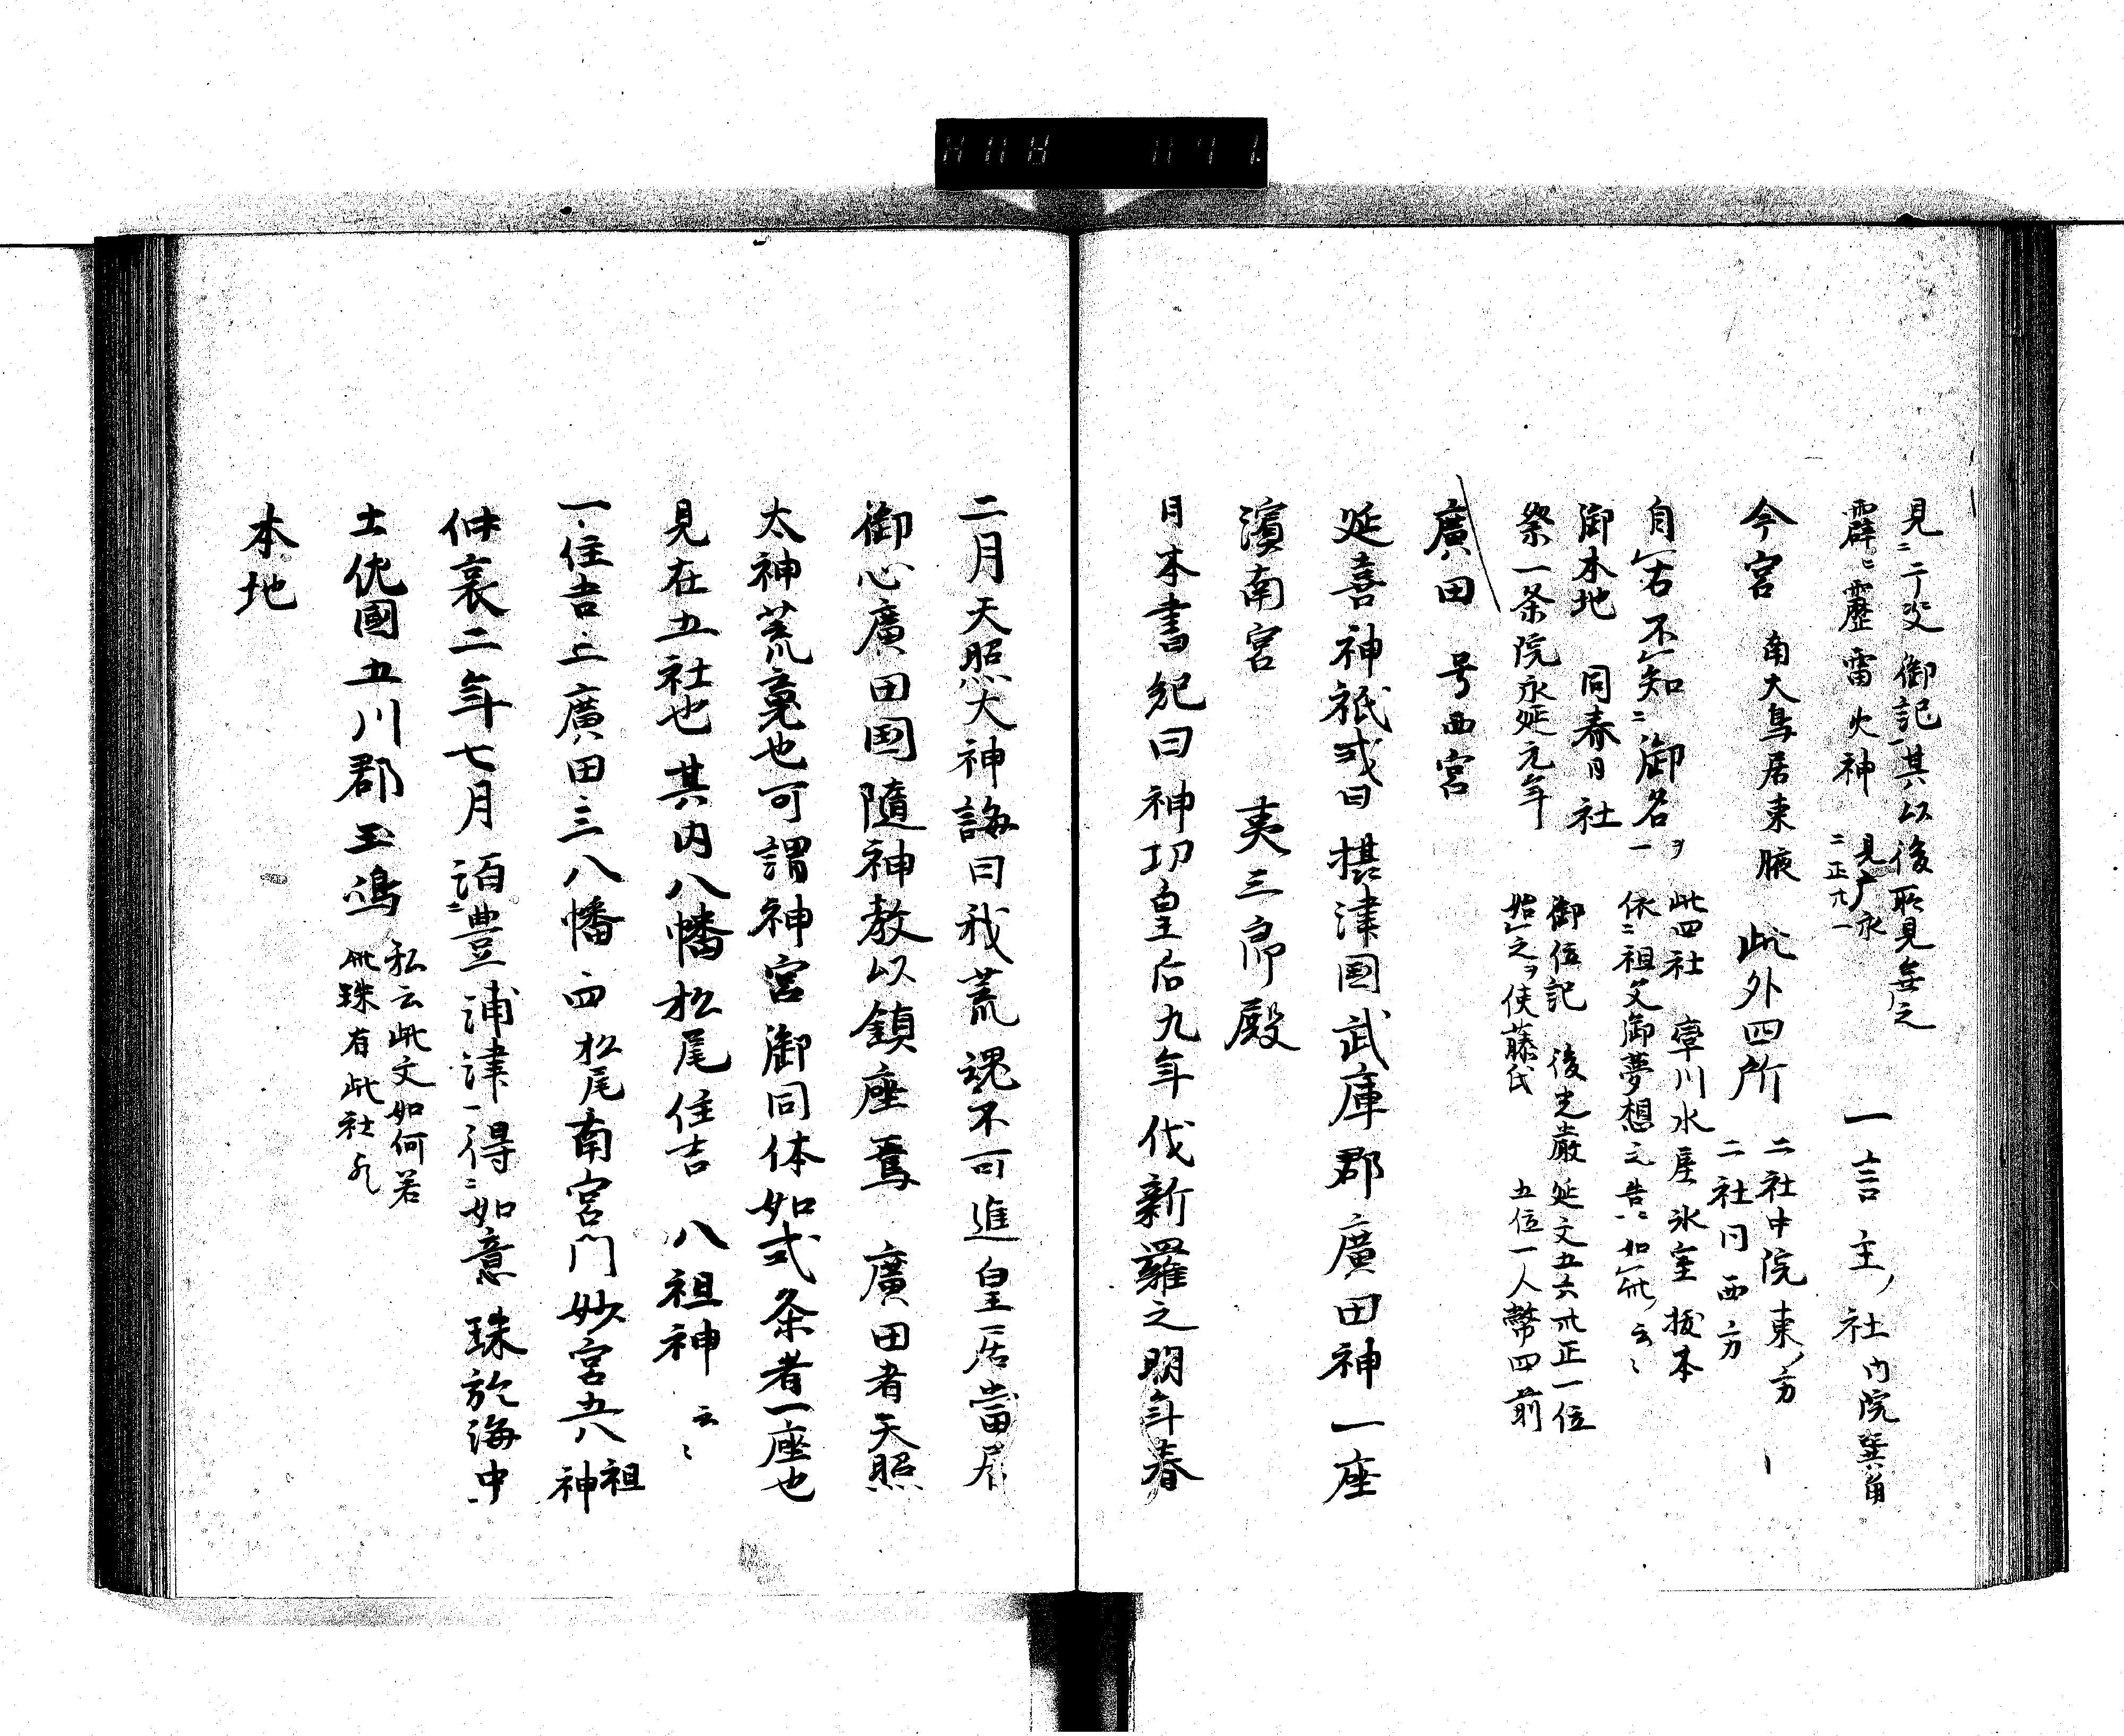 見ニ亡父御記一其以後所見無之
霹ニ靂雷火神 見广永二正十一 一言主ノ社 内院巽角
今宮 南大鳥居東腋 此外四所 二社中院東ノ方
二社同西方
自一右不一知ニ御名ヲ一 此四社 率川水屋氷室拔本
依ニ祖父御夢想之告ニ如一此ノ云〻
御本地 同春日社 御位記 後光嚴延文五六廿正一位
祭一条院永延元年始一之ヲ使藤氏 五位一人幣四前
廣田 号西宮
延喜神祇式曰攝津国武庫郡廣田神一座
濱南宮 夷三郎殿
日本書紀曰神功皇后九年伐新羅之明年春
二月天照大神誨曰我荒魂不可進皇居當居
御心廣田国隨神教以鎮座焉 廣田者天照
太神荒䰟也可謂神宮御同体如式条者一座也
見在五社也其内八幡松尾住吉 八祖神 云〻
一住吉二廣田三八幡四松尾南宮門妙宮五八祖神
仲哀二年七月泊ニ豊浦津一得ニ如意珠於海中
土佐國五川郡玉嶋 私云此文如何若
此珠有此社歟
本地